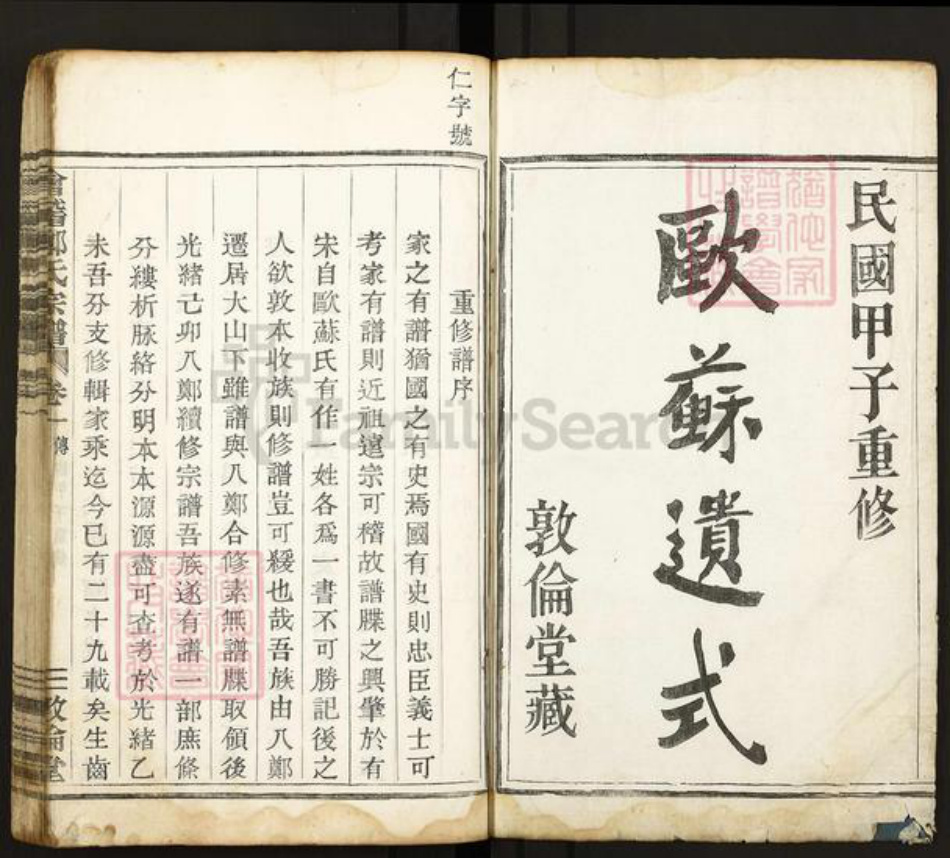 民國甲子重修
歐蘇遺式
敦倫堂藏
仁字號
重修譜序
家之有譜猶國之有史焉國有史則忠臣義士可
考家有譜則近祖遠宗可稽故譜牒之興肇於有
宋自歐蘇氏有作一姓各爲一書不可勝記後之
人欲敦本收族則修譜豈可緩也哉吾族由八鄭
遷居大山下雖譜與八鄭合修素無譜牒取領後
光緒己卯八鄭續修宗譜吾族遂有譜一部庶條
分縷析脉絡分明本本源源盡可查考於光緒乙
未吾分支修輯家乘迄今已有二十九載矣生齒
會稽鄭氏宗譜 卷一 傳
一 敦倫堂
FamilySearch